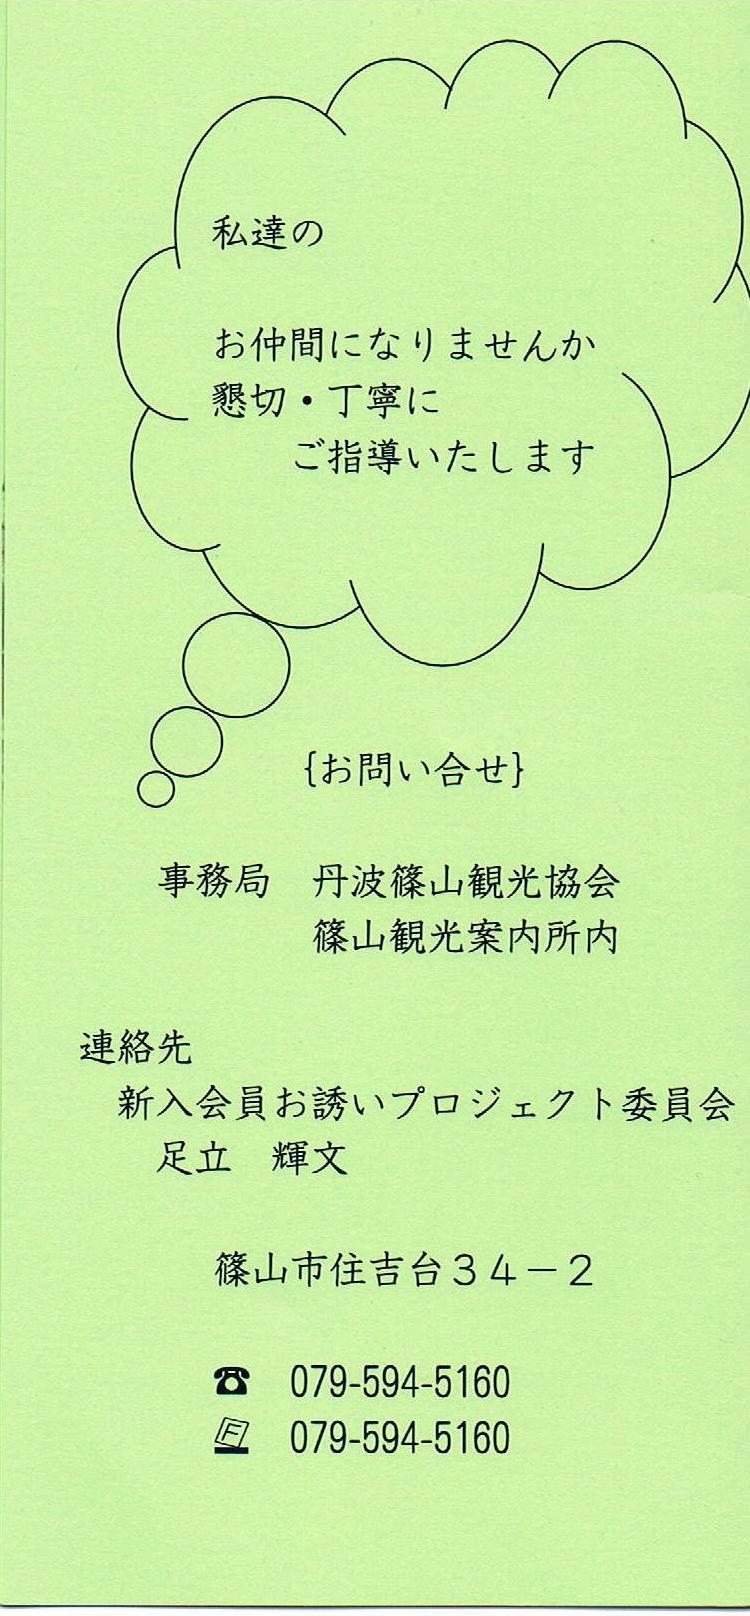 私達の
お仲間になりませんか
懇切・丁寧に
ご指導いたします
{お問い合せ}
事務局　丹波篠山観光協会
篠山観光案内所内
連絡先
新入会員お誘いプロジェクト委員会
足立　輝文
篠山市住吉台３４－２
☎　079-594-5160
F　079-594-5160